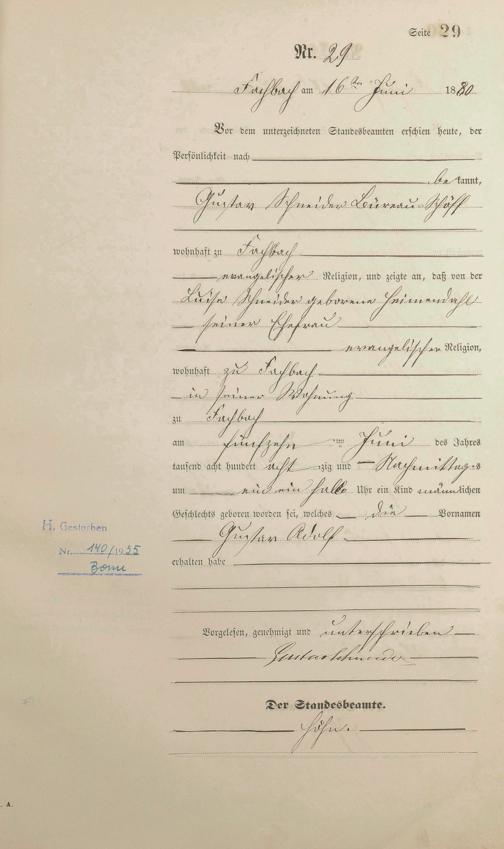 Seite 29
Nr. 29
Fachbach am 16ten Juni 1880
Vor dem unterzeichneten Standesbeamten erschien heute, der
Persönlichkeit nach
bekannt,
Gustav Schneider Büreau
wohnhaft zu Fachbach
evangelischer Religion, und zeigte an, daß von der
Luise Schneider geborene Heimendahl
seiner Ehefrau
evangelischer Religion,
wohnhaft zu Fachbach
in seiner Wohnung
zu Fachbach
am fünfzehn ten Juni des Jahres
tausend acht hundert acht zig und — Nachmittags
um ein ein halb Uhr ein Kind männlichen
Geschlechts geboren worden sei, welches die Vornamen
Gustav Adolf
erhalten habe
H. Gestorben
Nr. 140/1955
Bonn
Vorgelesen, genehmigt und unterschrieben
Gustav Schneider
Der Standesbeamte.
Höhn.
A.